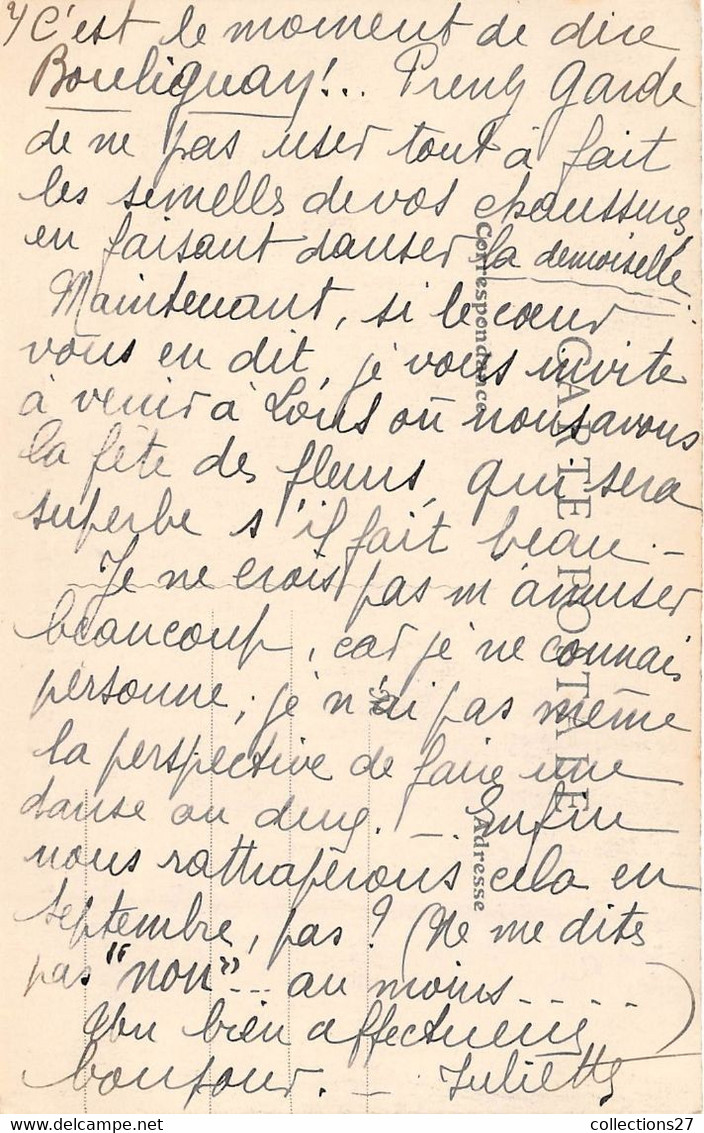 C'est le moment de dire
Bouliguay!.. Prenez Garde
de ne pas user tout à fait
les semelles de vos chaussures,
en faisant danser la demoiselle.
Maintenant, si le cœur
vous en dit, je vous invite
à venir à où nous avons
la fête des fleurs, qui sera
superbe s'il fait beau. –
Je ne crois pas m'amuser
beaucoup, car je ne connais
personne; je n'ai pas même
la perspective de faire une
danse ou deux. – Enfin
nous rattraperons cela en
septembre, pas? (Ne me dites
pas "non"... au moins.....)
Un bien affectueux
bonjour. – Juliette
CARTE POSTALE
Correspondance
Adresse
collections27